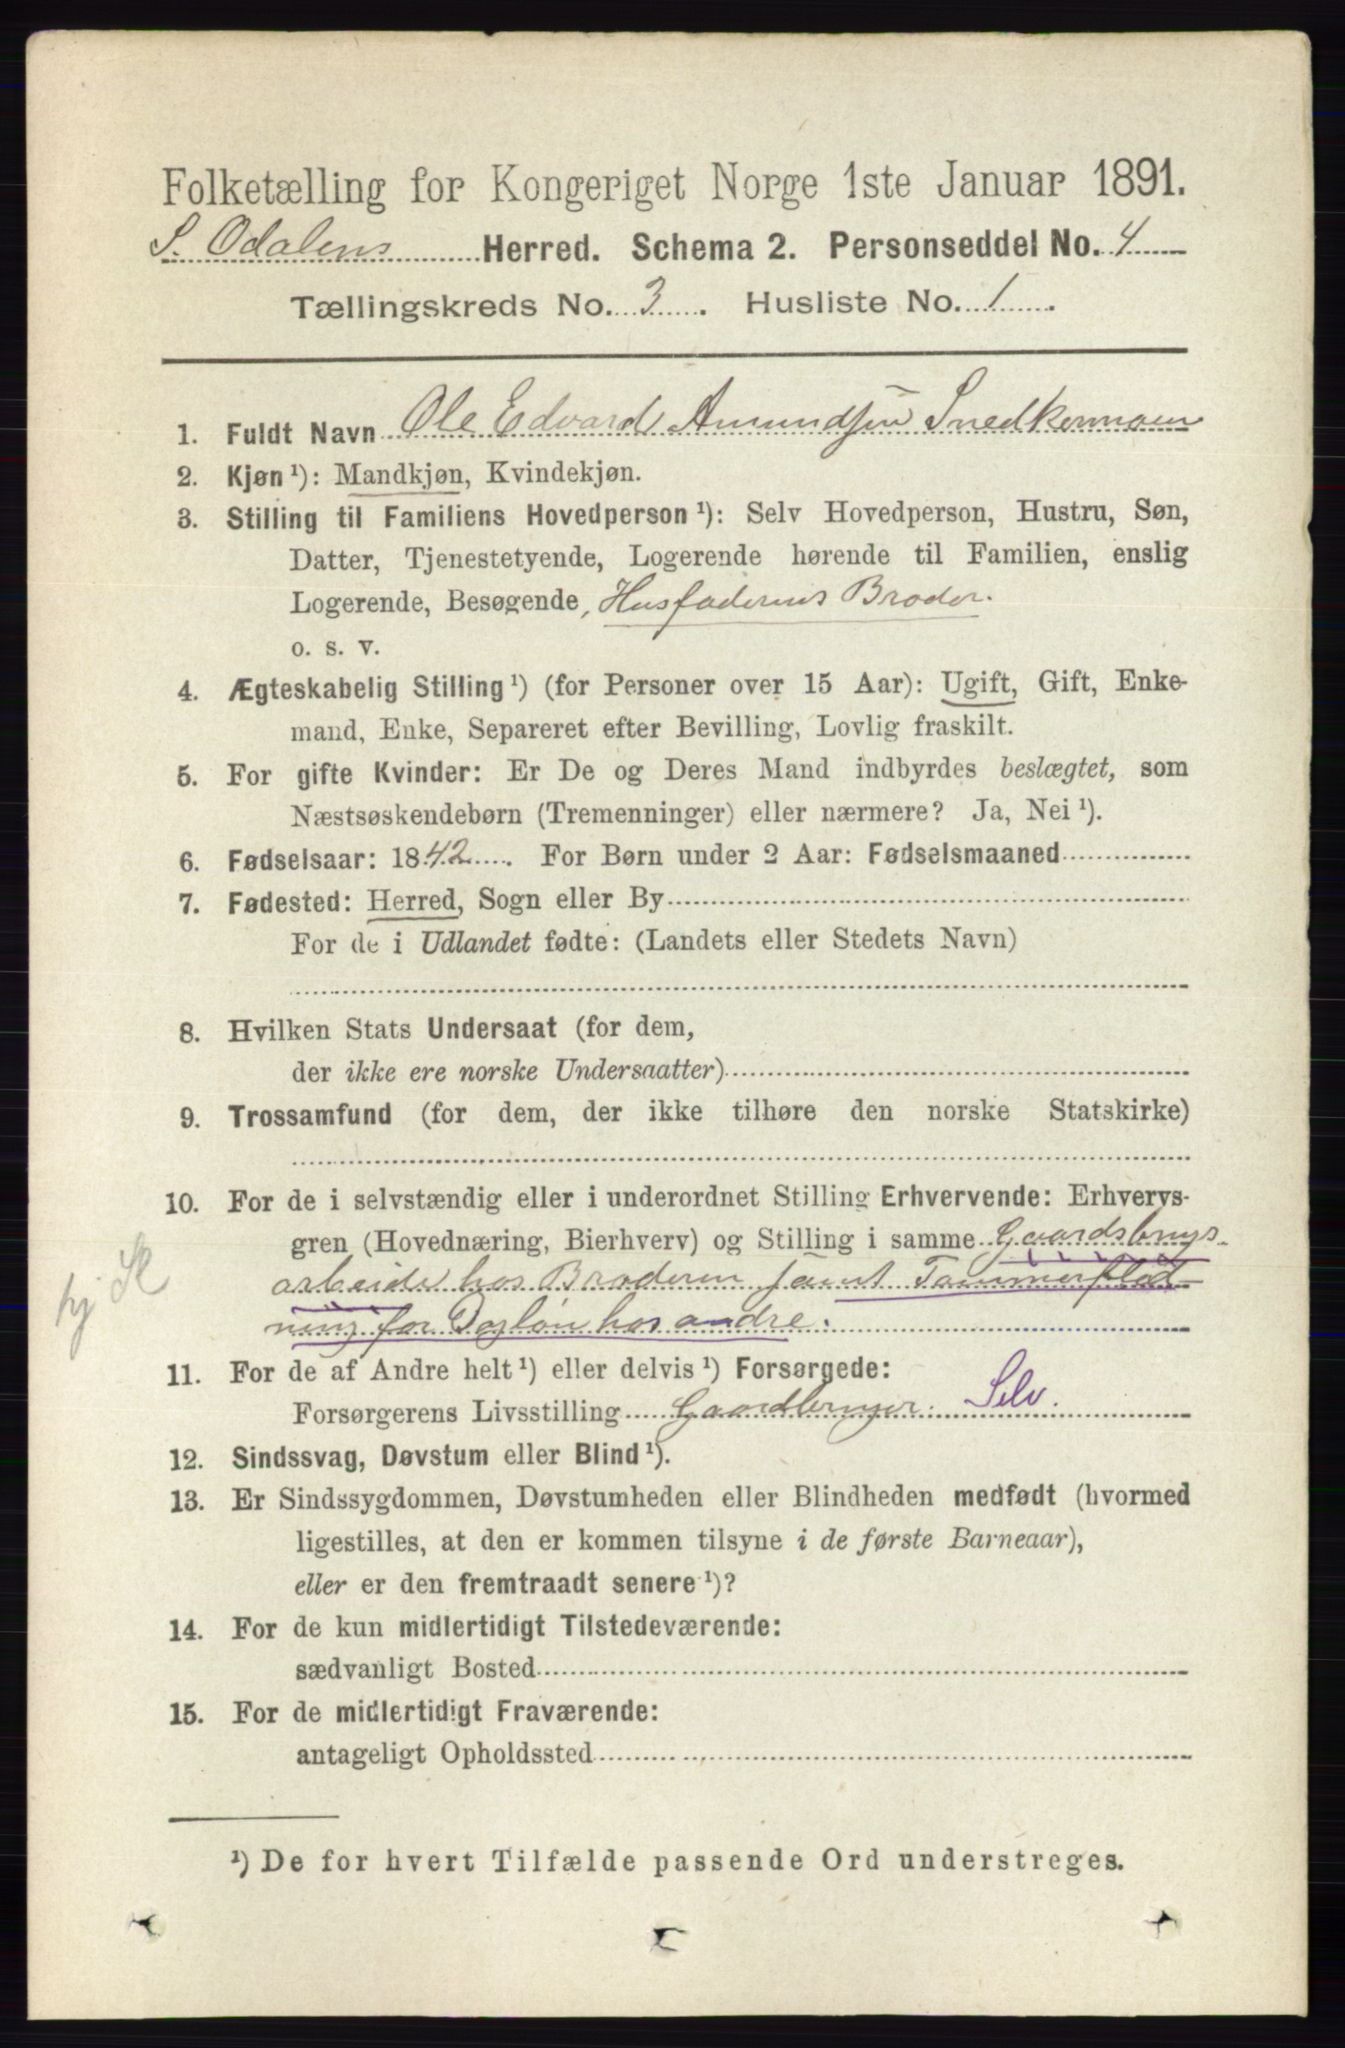 Folketælling for Kongeriget Norge 1ste Januar 1891.
S. Odalens Herred. Schema 2. Personseddel No. 4
Tællingskreds No. 3. Husliste No. 1.
1. Fuldt Navn Ole Edvard Amundsen Snedkermoen
2. Kjøn ¹): Mandkjøn, Kvindekjøn.
3. Stilling til Familiens Hovedperson ¹): Selv Hovedperson, Hustru, Søn,
Datter, Tjenestetyende, Logerende hørende til Familien, enslig
Logerende, Besøgende, Husfaderens Broder.
o. s. v.
4. Ægteskabelig Stilling ¹) (for Personer over 15 Aar): Ugift, Gift, Enke-
mand, Enke, Separeret efter Bevilling, Lovlig fraskilt.
5. For gifte Kvinder: Er De og Deres Mand indbyrdes beslægtet, som
Næstsøskendebørn (Tremenninger) eller nærmere? Ja, Nei ¹).
6. Fødselsaar: 1842. For Børn under 2 Aar: Fødselsmaaned
7. Fødested: Herred, Sogn eller By
For de i Udlandet fødte: (Landets eller Stedets Navn)
8. Hvilken Stats Undersaat (for dem,
der ikke ere norske Undersaatter)
9. Trossamfund (for dem, der ikke tilhøre den norske Statskirke)
10. For de i selvstændig eller i underordnet Stilling Erhvervende: Erhvervs-
gren (Hovednæring, Bierhverv) og Stilling i samme Gaardsbrugs-
arbeide hos Broderen samt Tømmerflød-
ning for Dagløn hos andre.
11. For de af Andre helt ¹) eller delvis ¹) Forsørgede:
Forsørgerens Livsstilling Gaardbruger. Selv.
12. Sindssvag, Døvstum eller Blind ¹).
13. Er Sindssygdommen, Døvstumheden eller Blindheden medfødt (hvormed
ligestilles, at den er kommen tilsyne i de første Barneaar),
eller er den fremtraadt senere ¹)?
14. For de kun midlertidigt Tilstedeværende:
sædvanligt Bosted
15. For de midlertidigt Fraværende:
antageligt Opholdssted
¹) De for hvert Tilfælde passende Ord understreges.